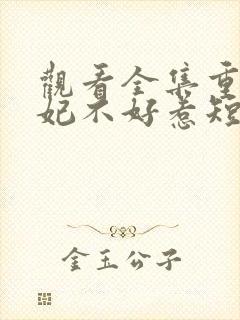 觀看全集重
妃不好惹短
金玉公子